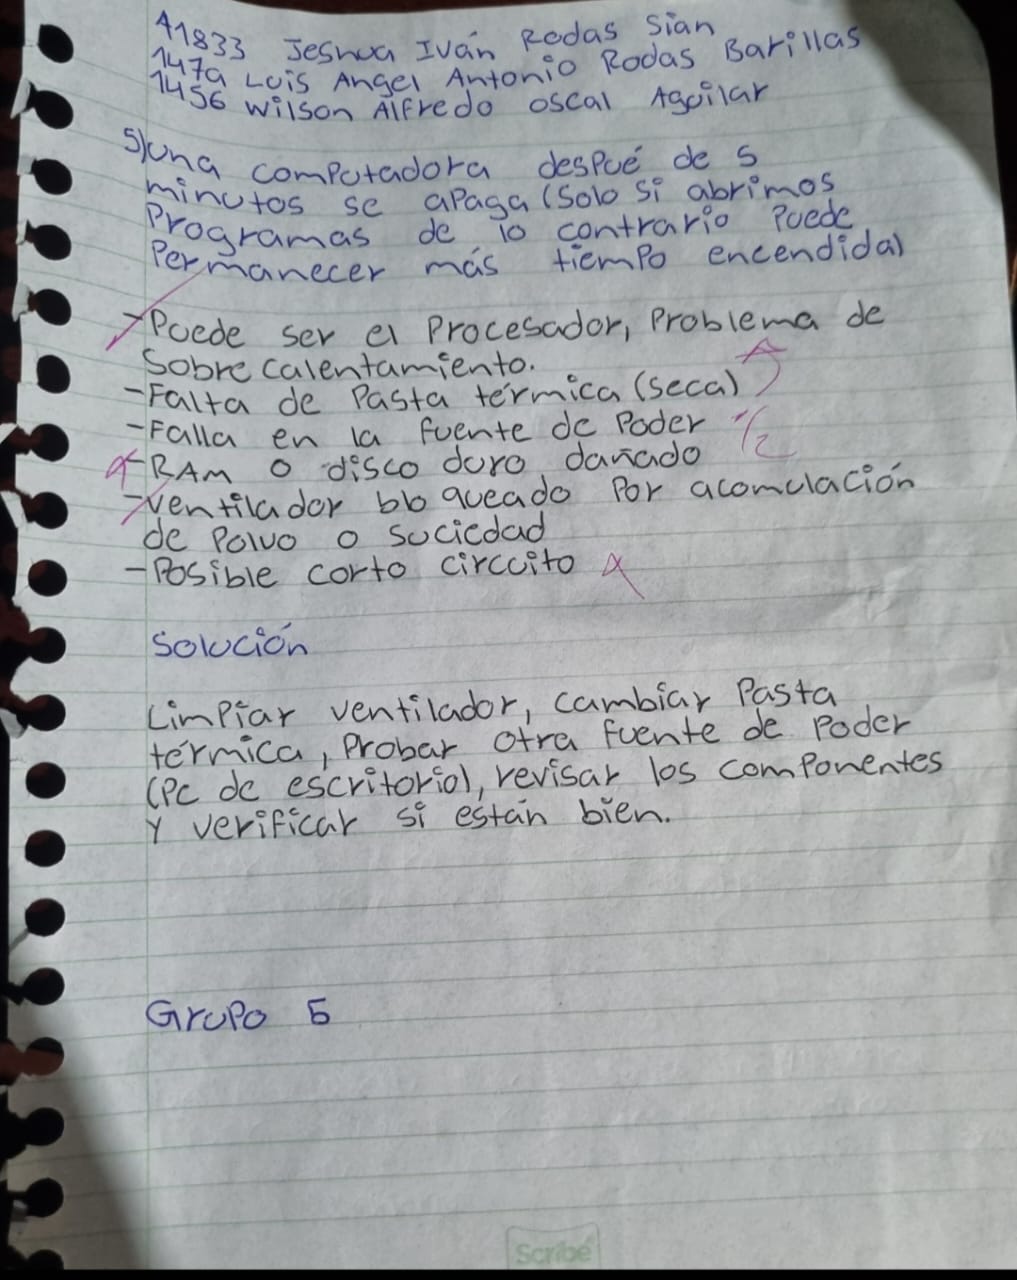 A1833 Jeshua Iván Rodas Sian
1479 Luis Angel Antonio Rodas Barillas
1456 Wilson Alfredo Oscal Aguilar
5) una computadora despué de 5
minutos se apaga (Solo si abrimos
Programas de lo contrario Puede
Permanecer más tiempo encendida)
-Puede ser el Procesador, Problema de
Sobre calentamiento.
-Falta de Pasta térmica (seca)
-Falla en la fuente de Poder 1/2
-RAM o disco duro dañado
-Ventilador bloqueado Por acomulación
de Polvo o suciedad
-Posible corto circuito
Solución
Limpiar ventilador, cambiar Pasta
térmica, Probar otra fuente de Poder
(Pc de escritorio), revisar los componentes
Y verificar si están bien.
Grupo 5
Scribe